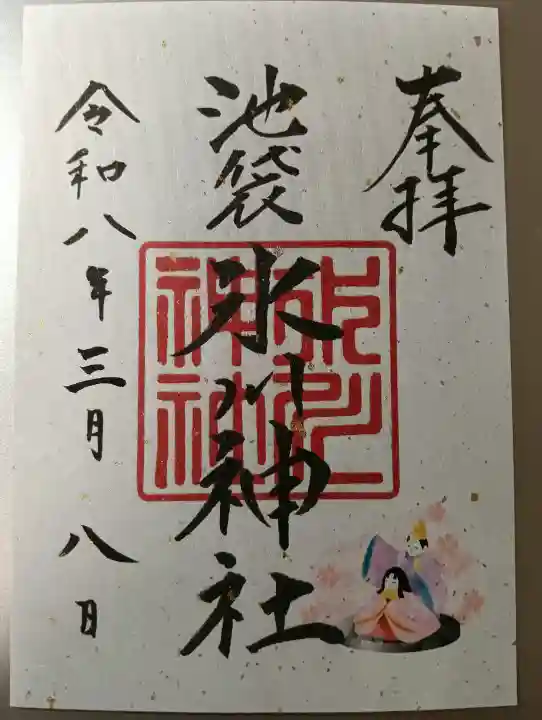 奉拝
池袋氷川神社
令和八年三月八日
氷川
神社